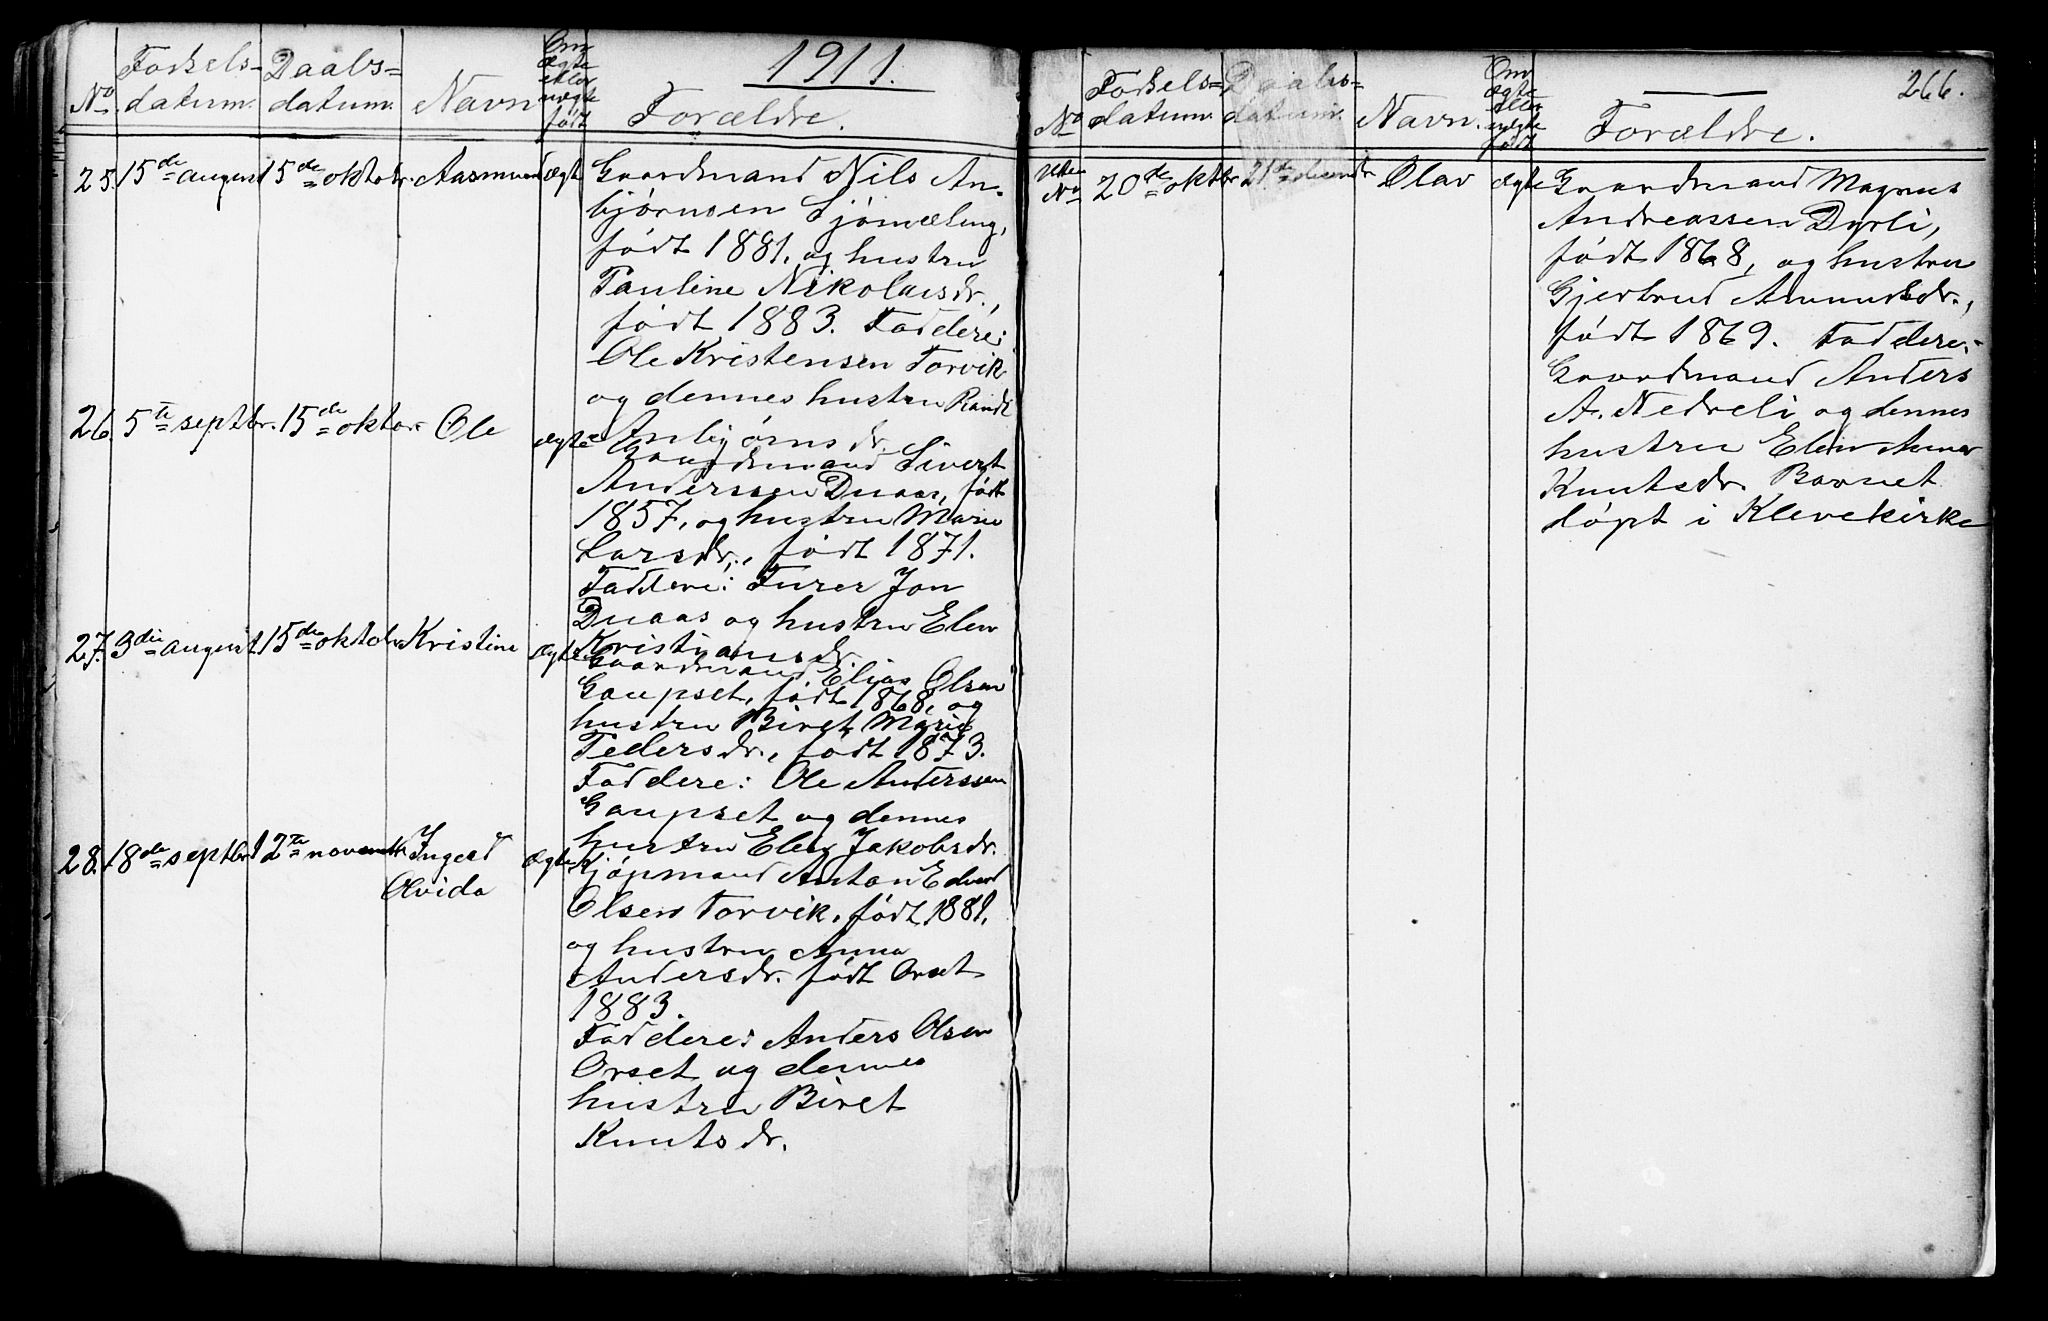 1911.
No Fødsels-datum. Daabs=datum. Navn Om ægte eller uægte født Forældre.
25. 15de august 15de oktobr. Aasmund ægte Gaardmand Nils An-
bjørnsen Sjømæling,
født 1881. og hustru
Pauline Nikolaisdr.,
født 1883. Faddere:
Ole Kristensen Torvik
og dennes hustru Randi
Anbjørnsdr.
26. 5te septbr. 15de oktor. Ole ægte Gaardmand Sivert
Anderssen Duaas, født
1857, og hustru Marie
Larsdr., født 1871.
Faddere: Furer Jon
Duaas og hustru Elen
Kristjansdr.
27. 3die august 15de oktobr Kristine ægte Gaardmand Elias Olsen
Gaupset, født 1868, og
hustru Biret Marie
Pedersdr., født 1873.
Faddere: Ole Anderssen
Gaupset og dennes
hustru Elen Jakobsdr.
28. 18de septbr 12te novembr Ingerd
Olvida ægte Kjøpmand Anton Edvard
Olsen Torvik, født 1881.
og hustru Anna
Andersdr. født Orset
1883.
Faddere: Anders Olsen
Orset og dennes
hustru Biret
Knutsdr.
266.
No Fødsels=datum. Daabs=datum. Navn. Om ægte eller uægte født Forældre.
Uten No 20de oktbr 21de decembr Olav ægte Gaardmand Magnus
Andreassen Dyrli,
født 1868, og hustru
Gjertrud Amundsdr.,
født 1869. Faddere:
Gaardmand Anders
A. Nedreli og dennes
hustru Elen Anna
Knutsdr. Barnet
døpt i Klevekirke